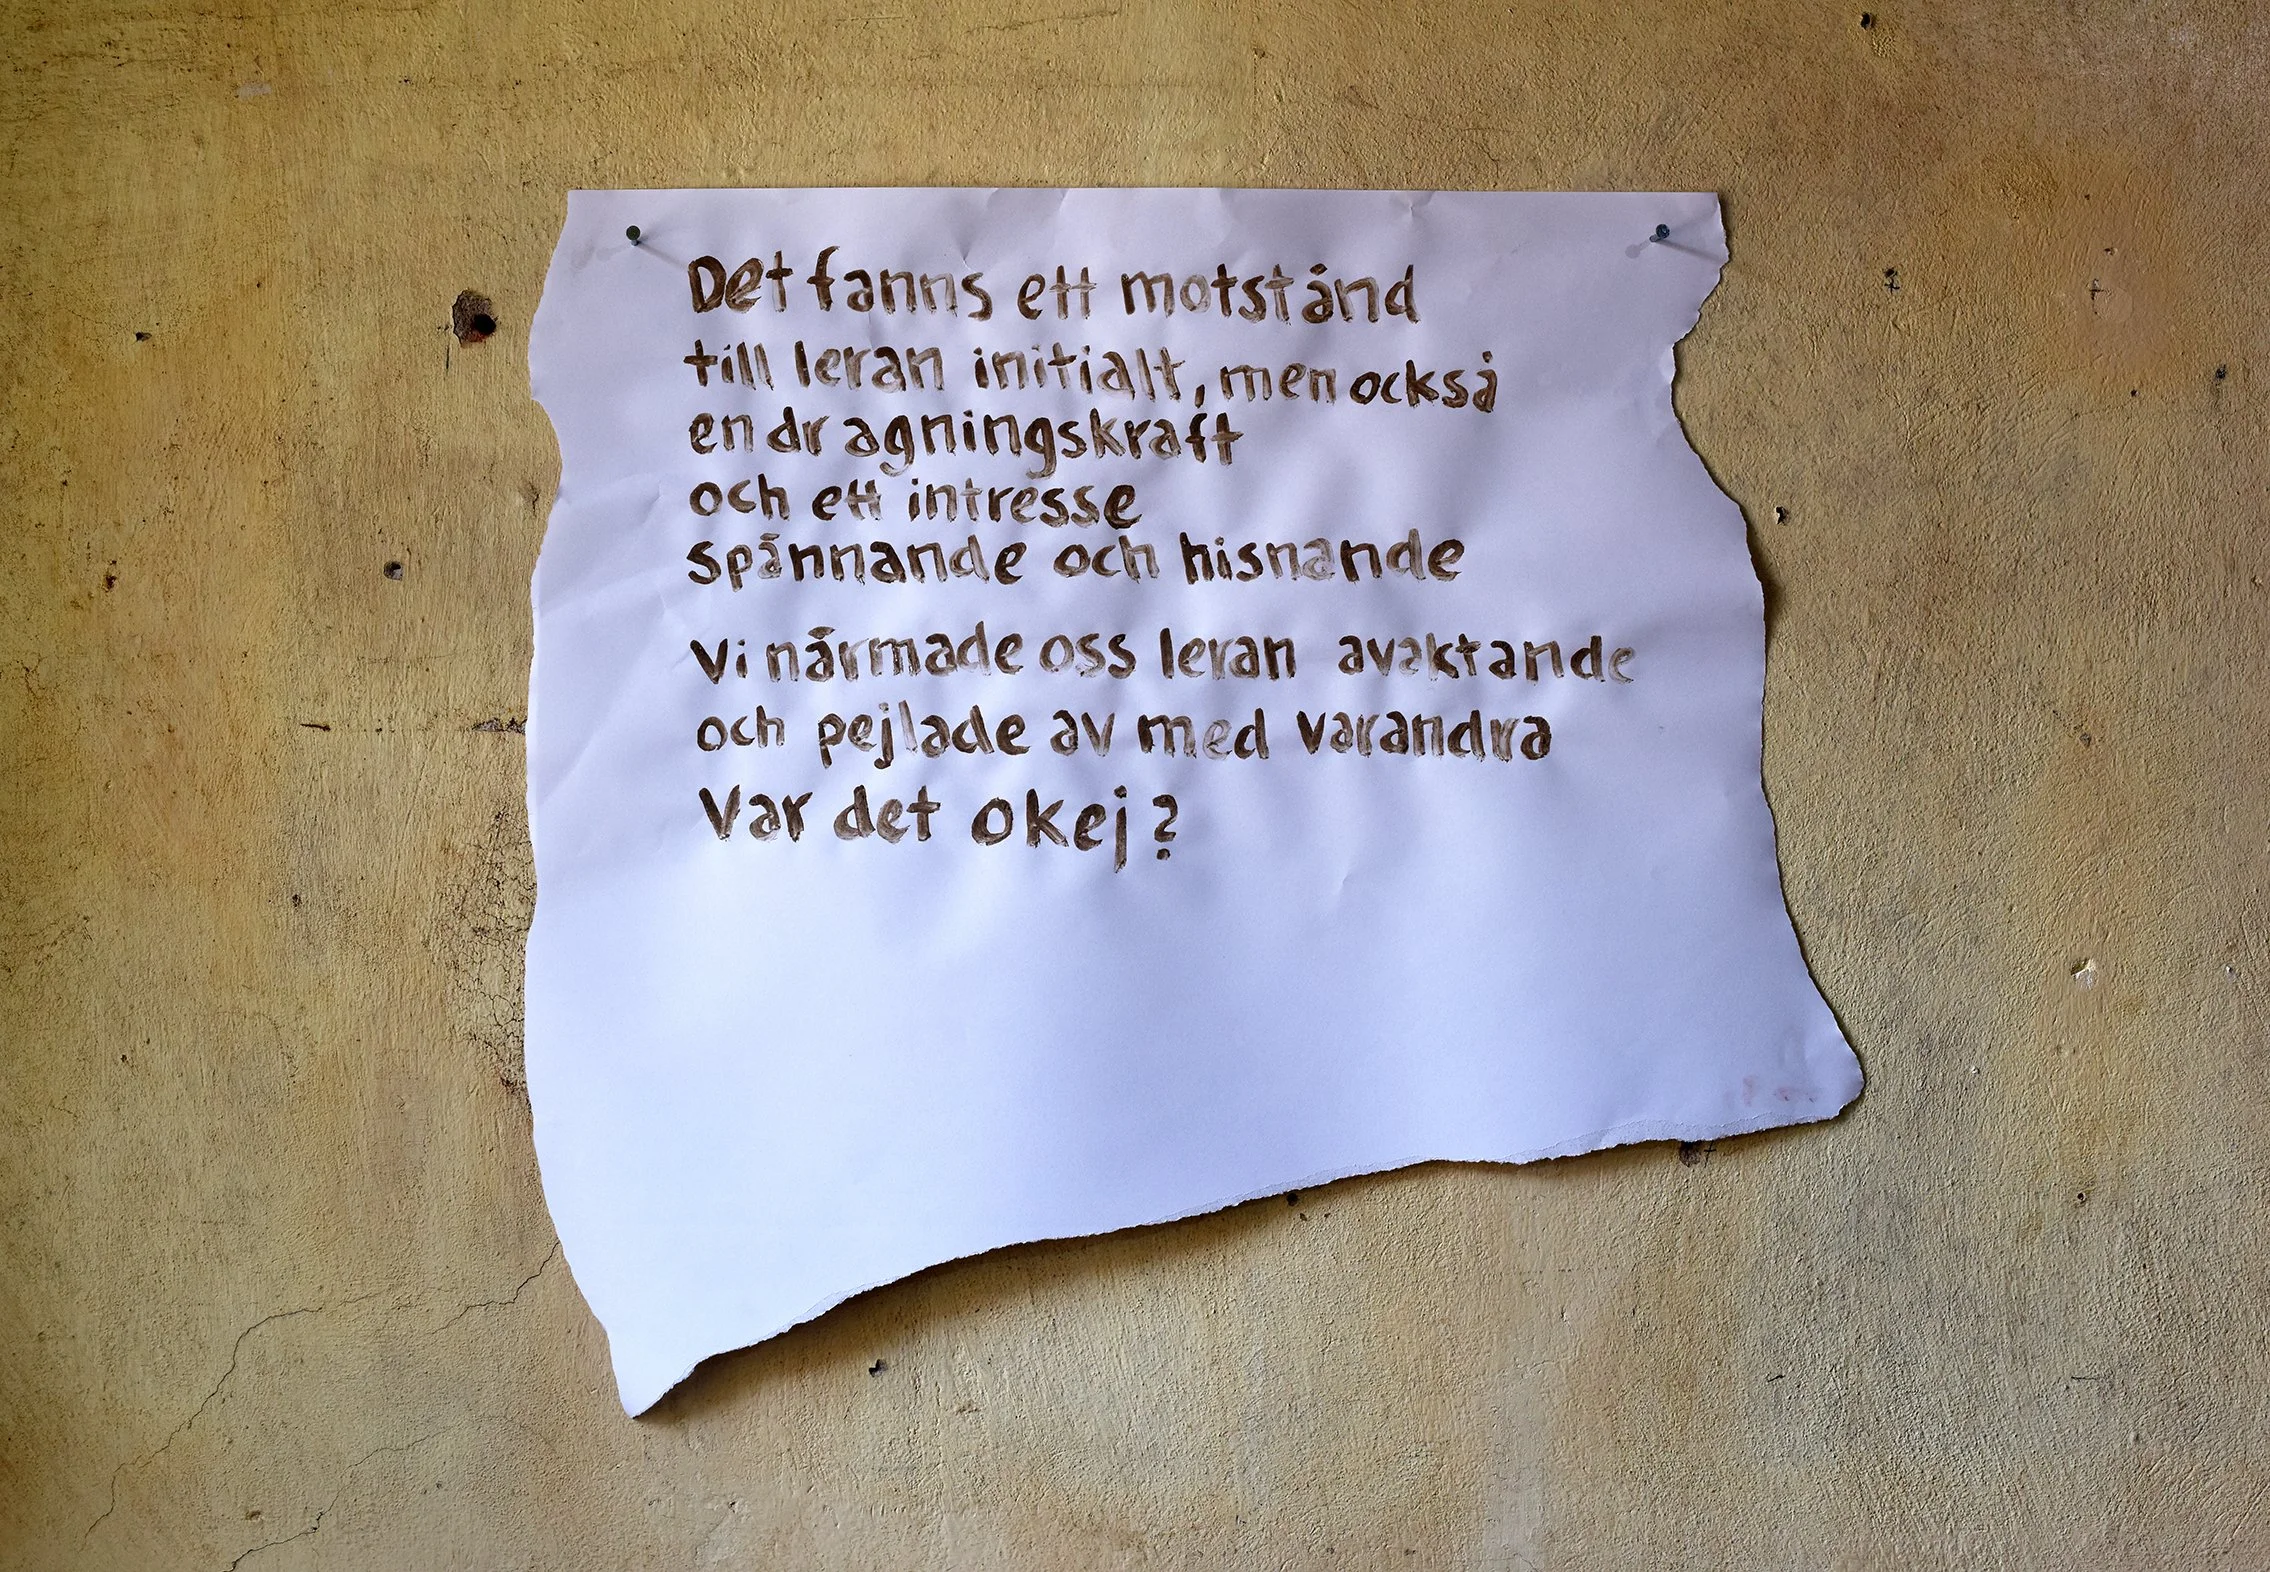 Det fanns ett motstånd
till leran initialt, men också
en dragningskraft
och ett intresse
spännande och hisnande
Vi närmade oss leran avaktande
och pejlade av med varandra
Var det okej?